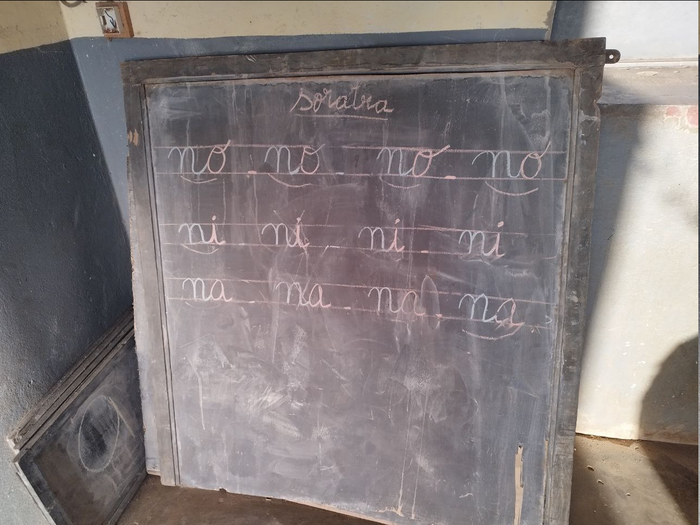 soratra
no - no - no - no
ni ni - ni - ni
na - na - na - na